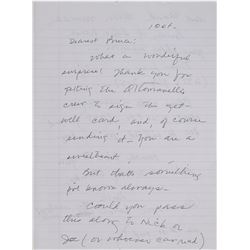 1 Oct.
Dearest
What a wonderful
surprise! Thank you for
getting the D'Romanellis
crew to sign the get-
well card, and, of course
sending it. You are a
sweetheart!
But that's something
I've known always.
Could you pass
this along to Nick or
Joe (or whoever